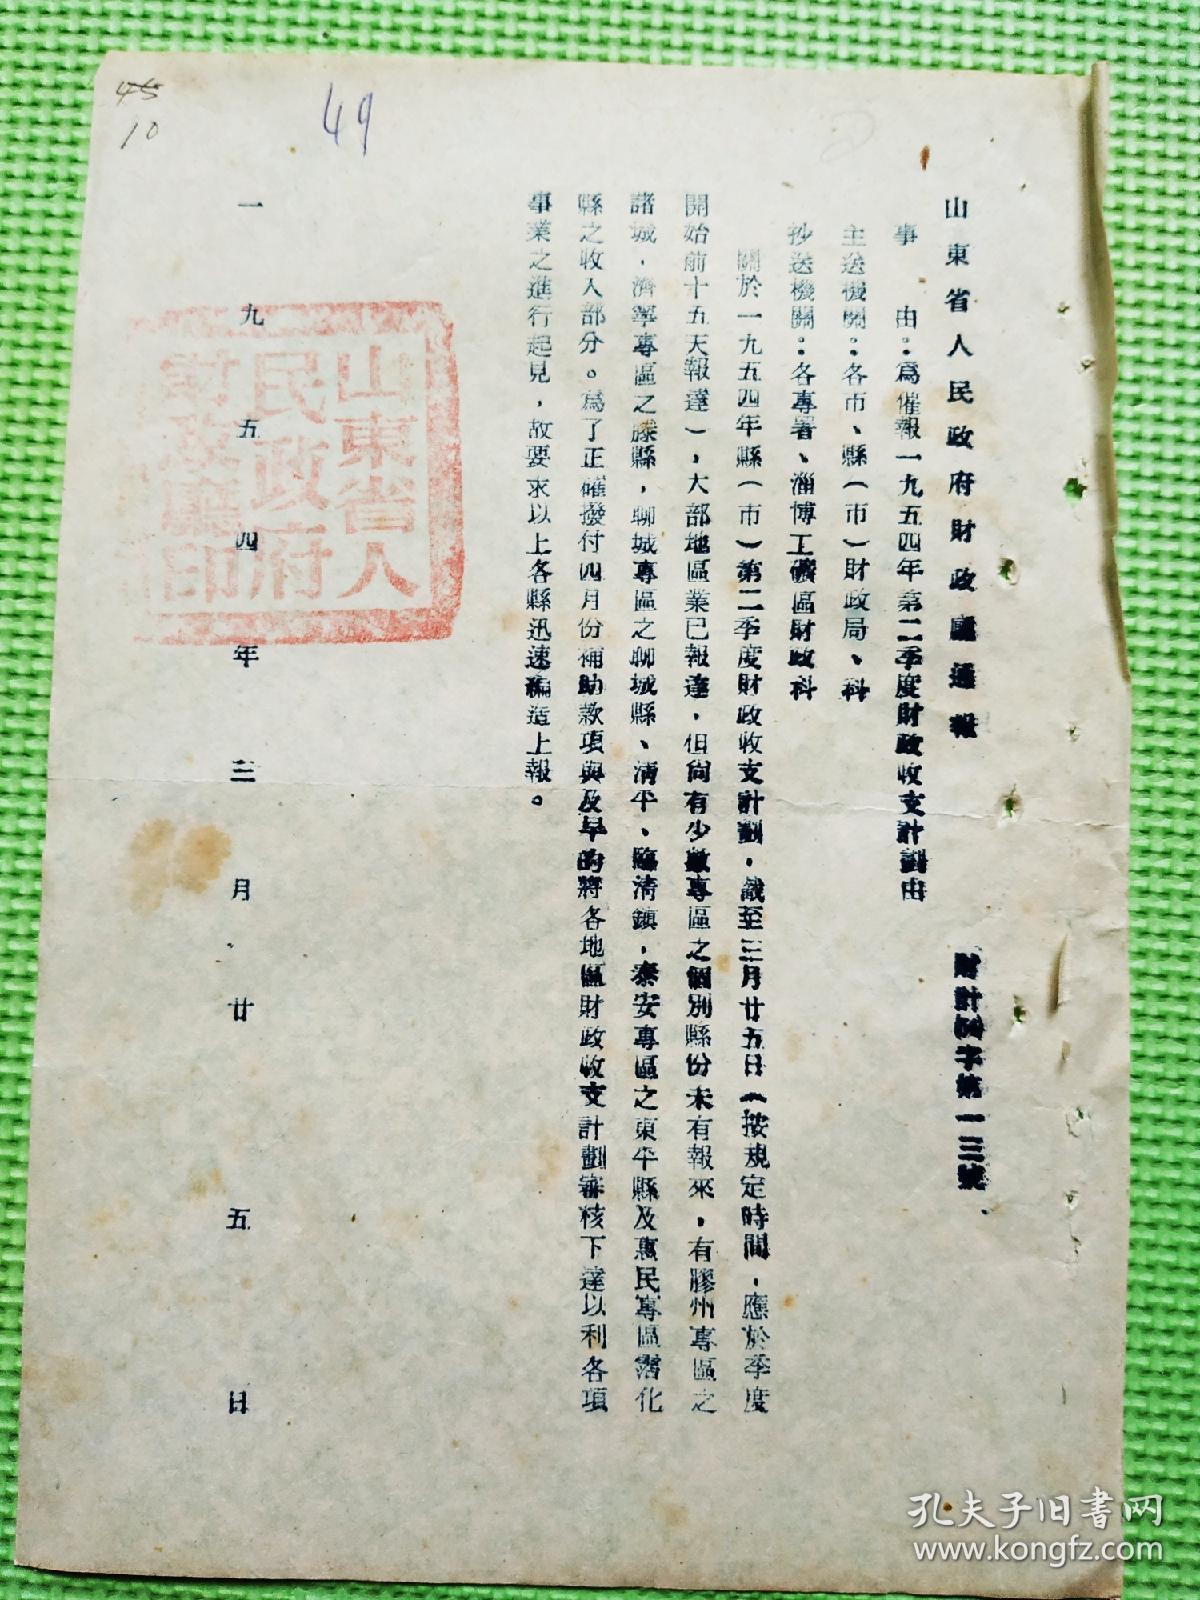 山東省人民政府財政廳通報
財計(54)字第一三號
事　由：為催報一九五四年第二季度財政收支計劃由
主送機關：各市、縣（市）財政局、科
抄送機關：各專署、淄博工礦區財政科
關於一九五四年縣（市）第二季度財政收支計劃，截至三月廿五日（按規定時間，應於季度
開始前十五天報達），大部地區業已報達，但尚有少數專區之個別縣份未有報來，有膠州專區之
諸城，濟寧專區之滕縣，聊城專區之聊城縣、清平、臨清鎮，泰安專區之東平縣及惠民專區霑化
縣之收入部分。為了正確撥付四月份補助款項與及早的將各地區財政收支計劃審核下達以利各項
事業之進行起見，故要求以上各縣迅速編造上報。
一九五四年三月廿五日
山東省人
民政府
財政廳印
49
45
10
孔夫子旧书网
www.kongfz.com